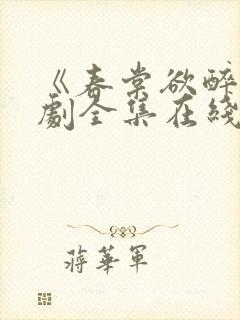 《春棠欲醉
劇全集在綫
蔣華軍